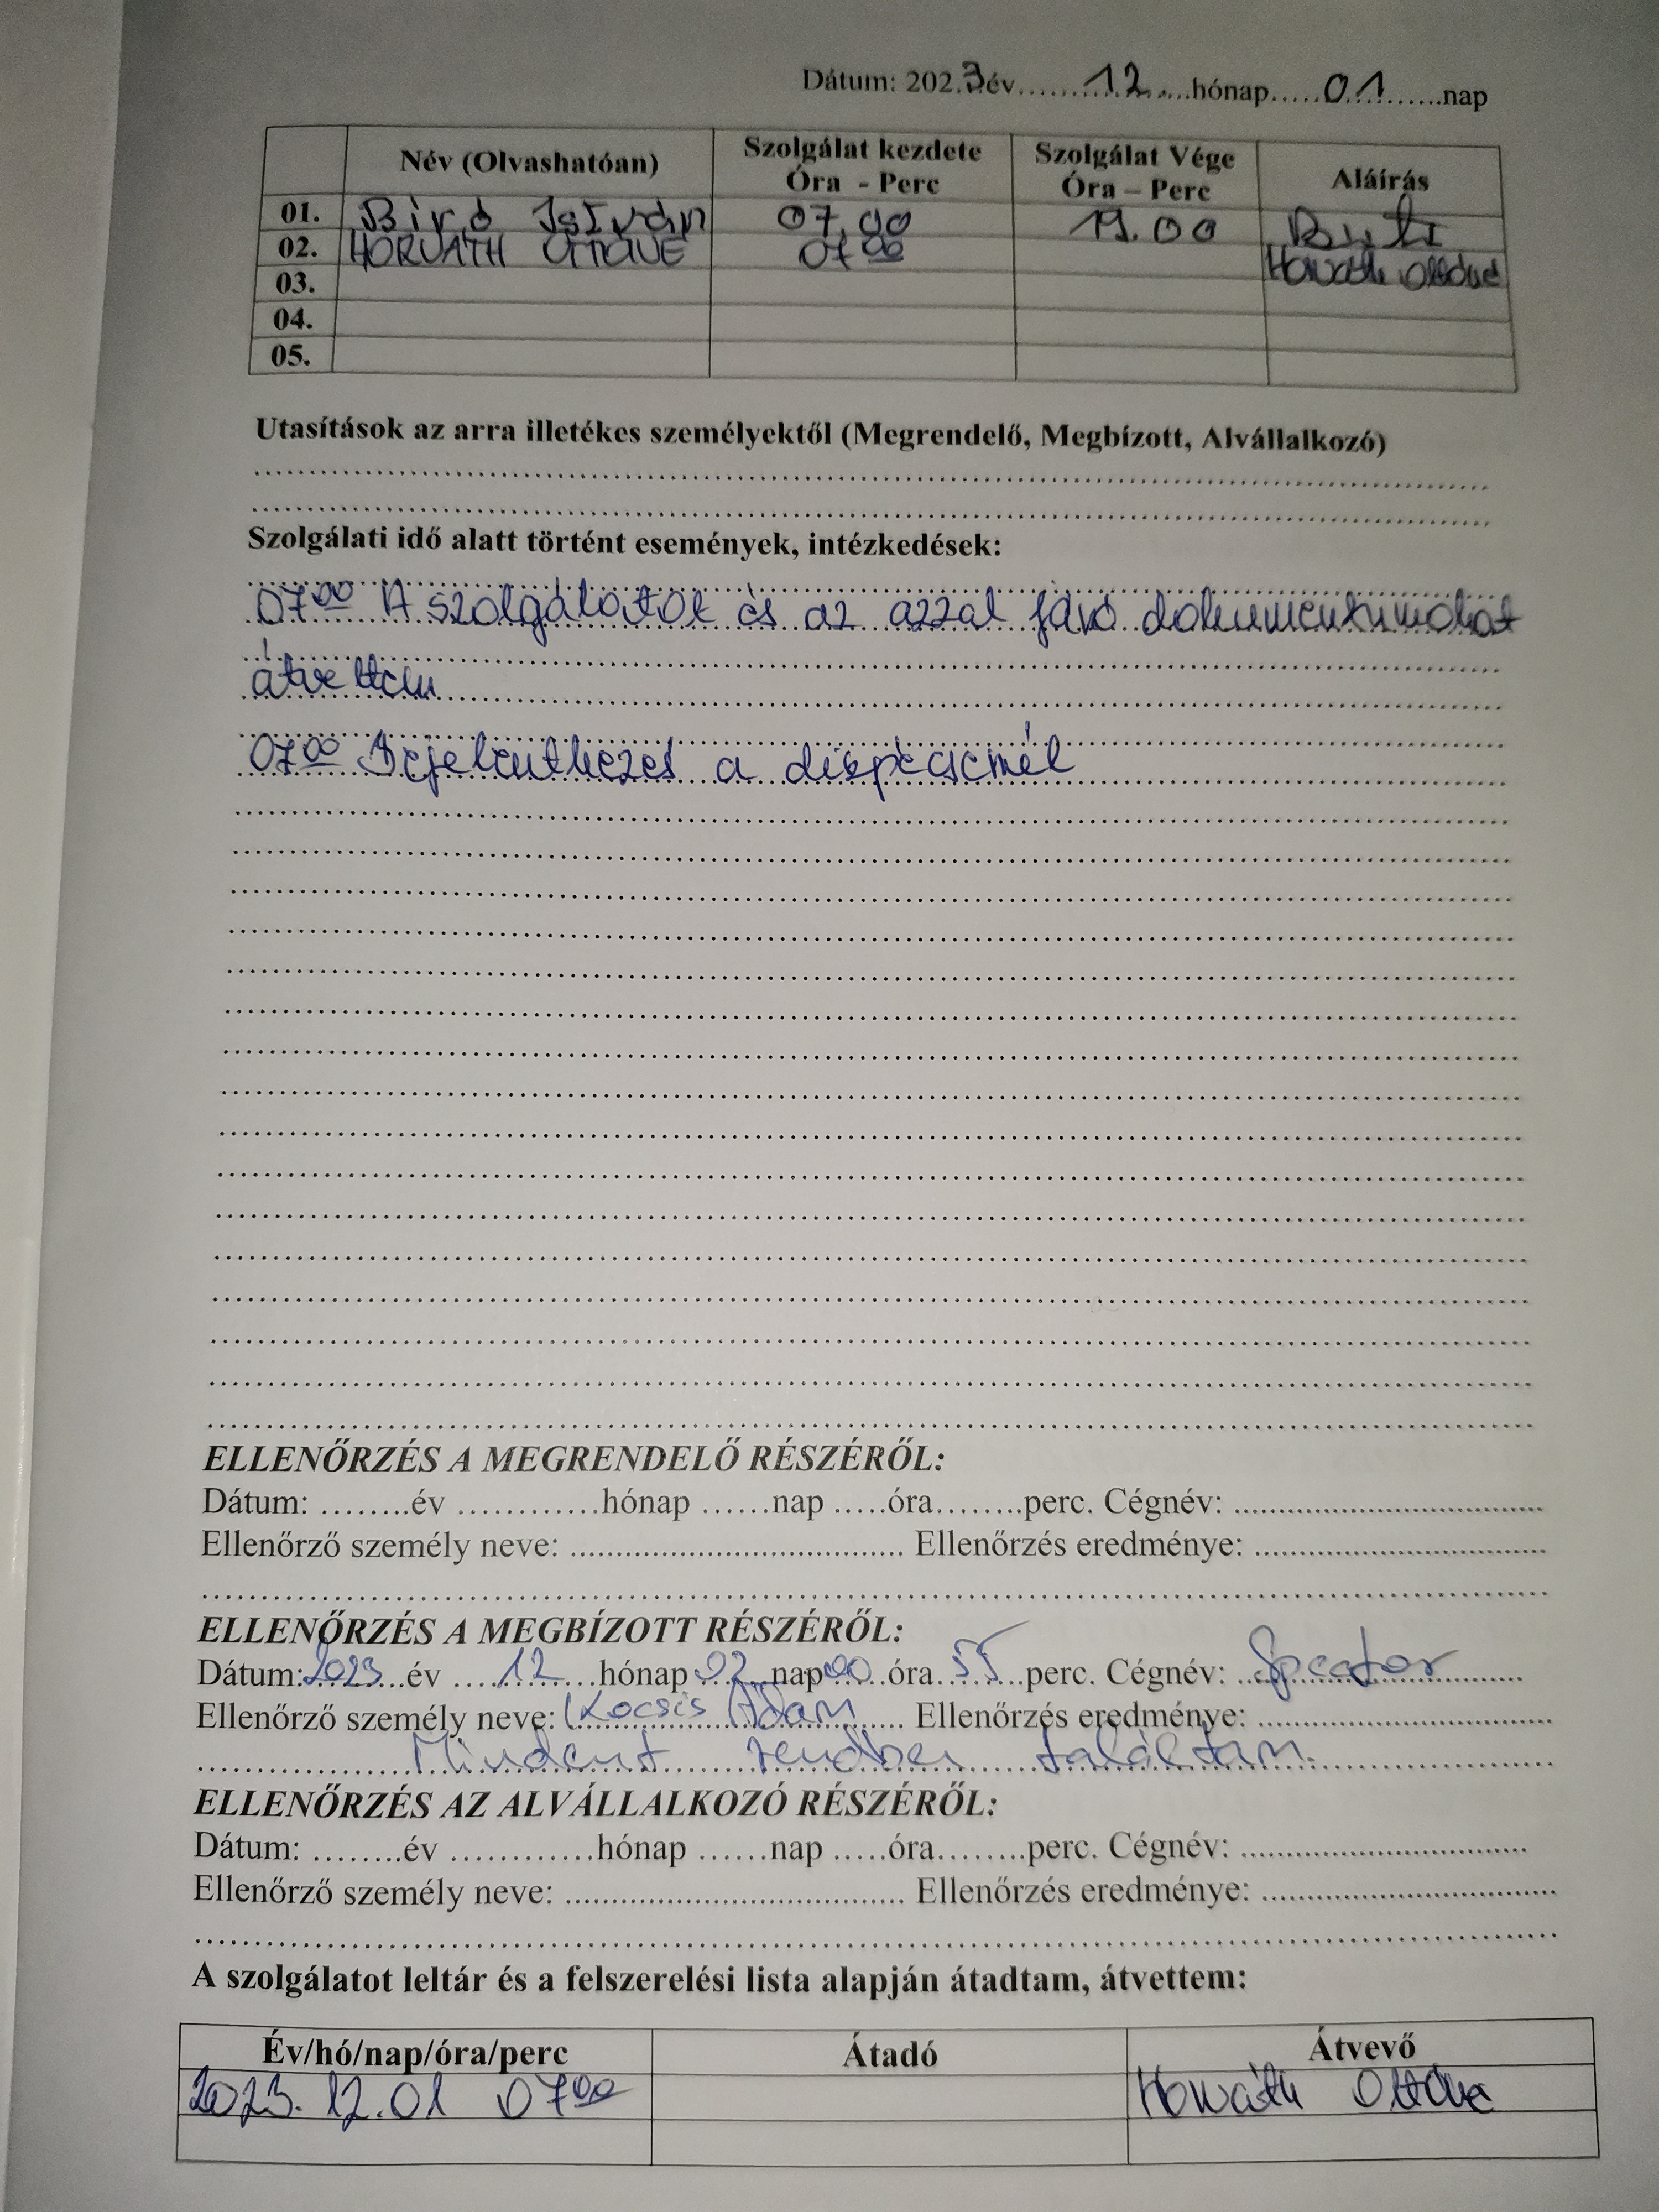 Dátum: 2023 év 12 hónap 01 nap
Név (Olvashatóan) Szolgálat kezdete Óra - Perc Szolgálat Vége Óra – Perc Aláírás
01. Biró István 07.00 19.00
02. HORVÁTH OTTÓNÉ 07 00 Horváth Ottóné
03.
04.
05.
Utasítások az arra illetékes személyektől (Megrendelő, Megbízott, Alvállalkozó)
Szolgálati idő alatt történt események, intézkedések:
07 00 A szolgálatot és az azzal járó dokumentumokat
átvettem
07 00 Bejelentkezés a diszpécsernél
ELLENŐRZÉS A MEGRENDELŐ RÉSZÉRŐL:
Dátum: ........év ............hónap ......nap .....óra........perc. Cégnév: ..............................
Ellenőrző személy neve: .................................... Ellenőrzés eredménye: ..............................
ELLENŐRZÉS A MEGBÍZOTT RÉSZÉRŐL:
Dátum: 2023 év 12 hónap 02 nap 00 óra 55 perc. Cégnév:
Ellenőrző személy neve: Kocsis Ádám Ellenőrzés eredménye:
Mindent rendben találtam.
ELLENŐRZÉS AZ ALVÁLLALKOZÓ RÉSZÉRŐL:
Dátum: ........év ............hónap ......nap .....óra........perc. Cégnév: ..............................
Ellenőrző személy neve: .................................... Ellenőrzés eredménye: ..............................
A szolgálatot leltár és a felszerelési lista alapján átadtam, átvettem:
Év/hó/nap/óra/perc Átadó Átvevő
2023. 12. 01 07 00 Horváth Ottóné